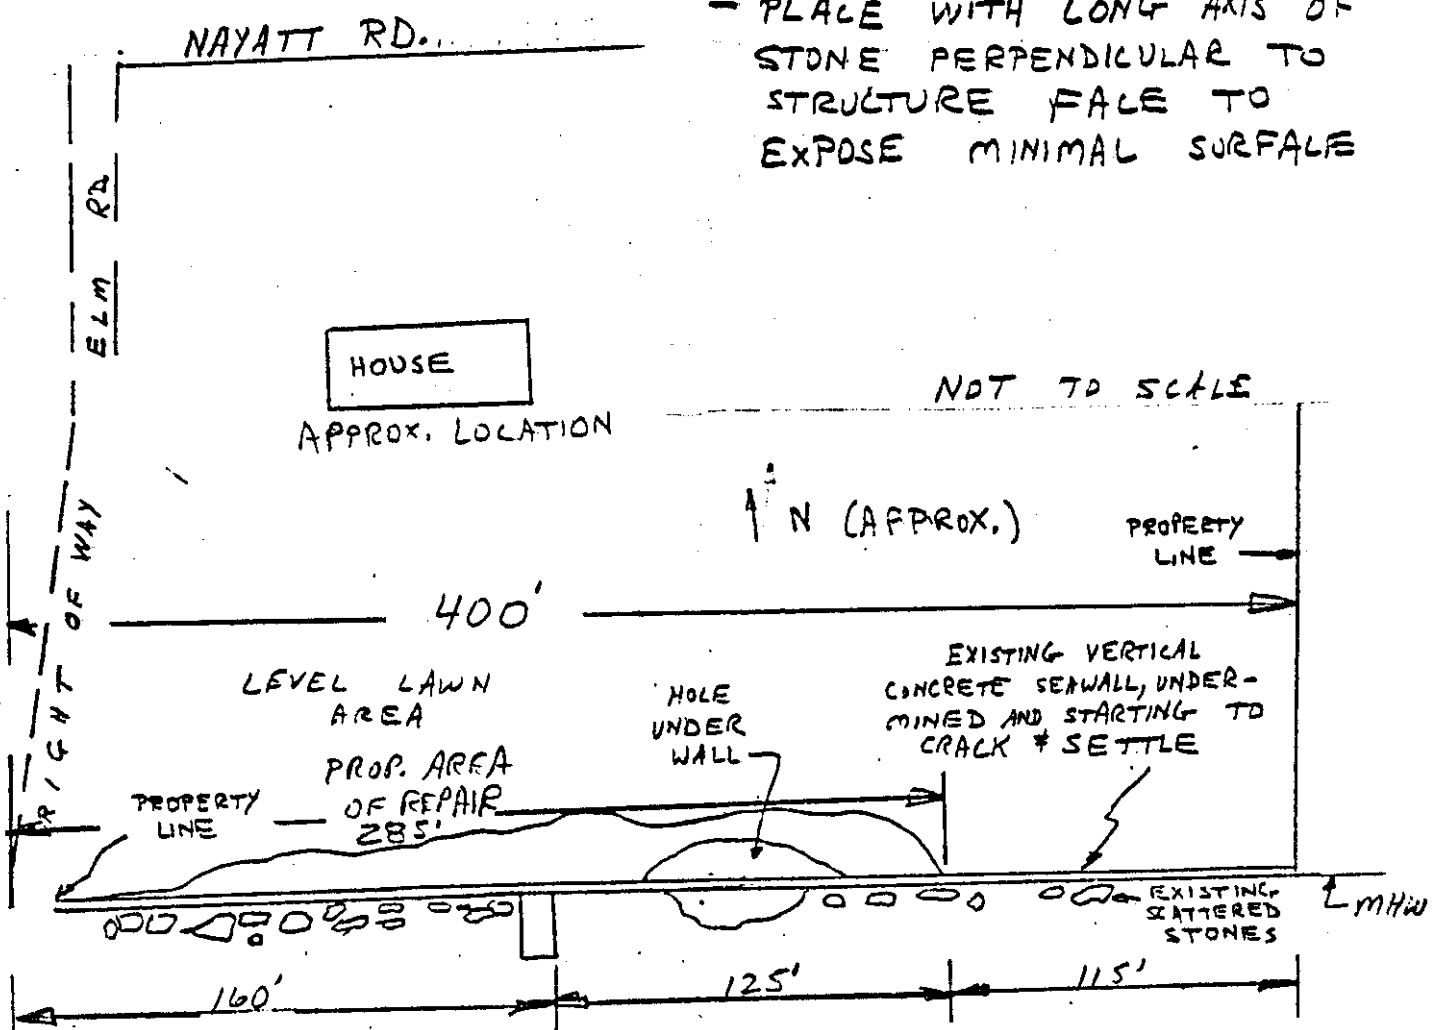 NAYATT RD.
- PLACE WITH LONG AXIS OF
STONE PERPENDICULAR TO
STRUCTURE FACE TO
EXPOSE MINIMAL SURFACE
ELM RD
HOUSE
APPROX. LOCATION
NOT TO SCALE
N (APPROX.)
PROPERTY
LINE
RIGHT OF WAY
400'
LEVEL LAWN
AREA
HOLE
UNDER
WALL
EXISTING VERTICAL
CONCRETE SEAWALL, UNDER-
MINED AND STARTING TO
CRACK & SETTLE
PROP. AREA
OF REPAIR
285'
PROPERTY
LINE
EXISTING
SCATTERED
STONES
MHW
160'
125'
115'